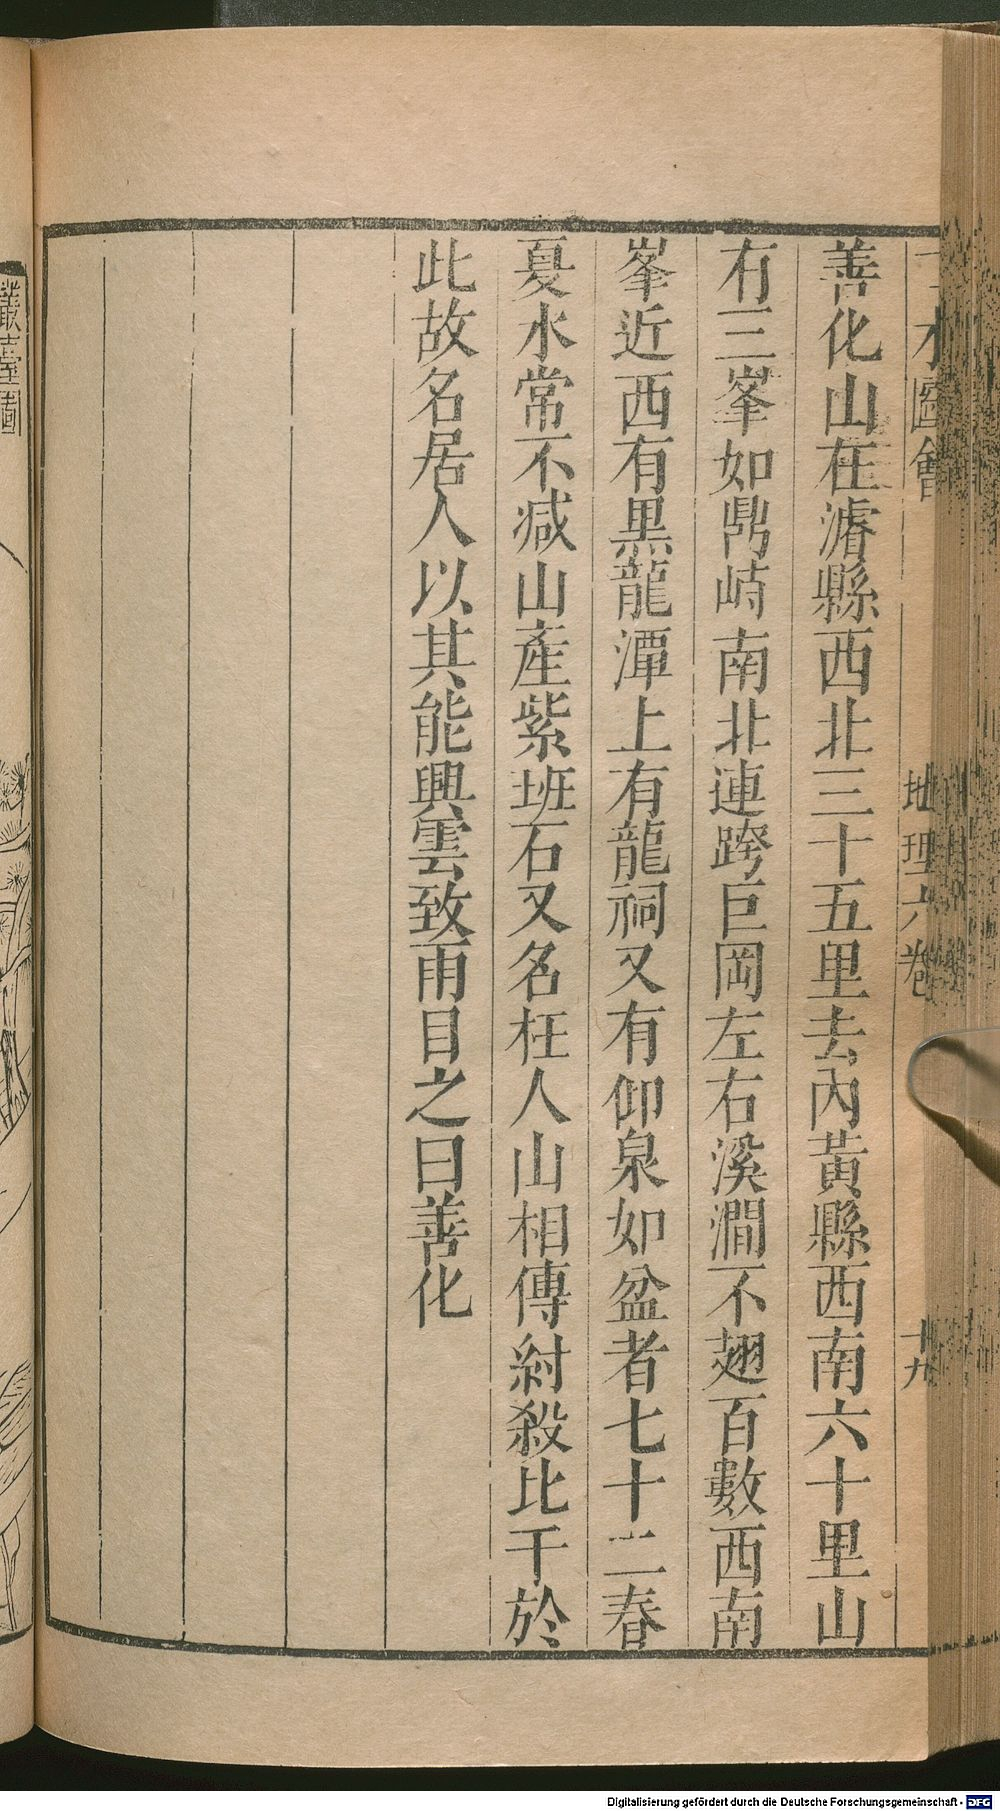 圖會
地理六卷
十九
善化山在濬縣西北三十五里去內黃縣西南六十里山
有三峯如鼎峙南北連跨巨岡左右溪澗不翅百數西南
峯近西有黑龍潭上有龍祠又有仰泉如盆者七十二春
夏水常不减山產紫班石又名枉人山相傳紂殺比干於
此故名居人以其能興雲致雨目之曰善化
Digitalisierung gefördert durch die Deutsche Forschungsgemeinschaft - DFG